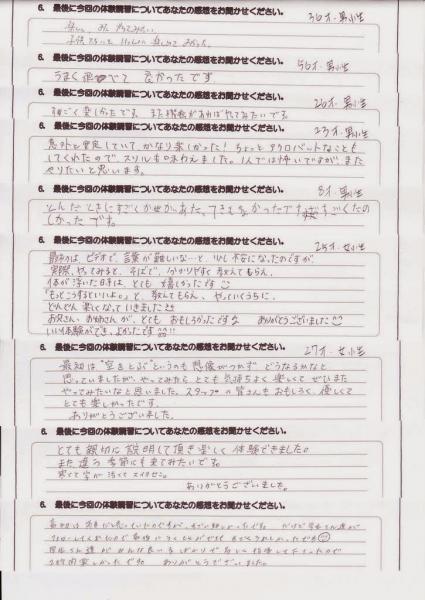 6. 最後に今回の体験講習についてあなたの感想をお聞かせください。 30才・男性
楽しい。また やってみたい。
6. 最後に今回の体験講習についてあなたの感想をお聞かせください。 50才・男性
うまく 飛べて 良かったです。
6. 最後に今回の体験講習についてあなたの感想をお聞かせください。 20才・男性
すごく楽しかったです。また機会があればやってみたいです。
6. 最後に今回の体験講習についてあなたの感想をお聞かせください。 23才・男性
意外と安定していて、かなり楽しかった！ちょっとアクロバットなことも
してくれたので、スリルも味わえました。1人では怖いですが、また
やりたいと思います。
6. 最後に今回の体験講習についてあなたの感想をお聞かせください。 8才 男性
とんだときにすごくかぜが、あた、
しかったです。
6. 最後に今回の体験講習についてあなたの感想をお聞かせください。 25才・女性
最初は、ビデオで、言葉が難しいな…と、少し不安になったのですが、
実際、やってみると、そばで、分かりやすく 教えてもらえ、
体が浮いた時は、とても 嬉しかったです
「もっとこうするといいよ。」と、教えてもらえ、やっていくうちに、
どんどん 楽しくなっていきました
お兄さん、お姉さんが、とても、おもしろかったです ありがとうございました
いい体験ができ、よかったです!!
6. 最後に今回の体験講習についてあなたの感想をお聞かせください。 27才・女性
最初は"空をとぶ"というのも想像がつかず どうなるかなと
思っていましたが、やってみたら とても気持ちよく楽しくて ぜひまた
やってみたいなと思いました。スタッフの皆さんもおもしろく、優しくて
とても楽しかったです。
ありがとうございました。
6. 最後に今回の体験講習についてあなたの感想をお聞かせください。
とても親切に説明して頂き楽しく体験できました。
また違う季節にも来てみたいです。
ありがとうございました。
6. 最後に今回の体験講習についてあなたの感想をお聞かせください。
楽しかったです。 ありがとうございました。